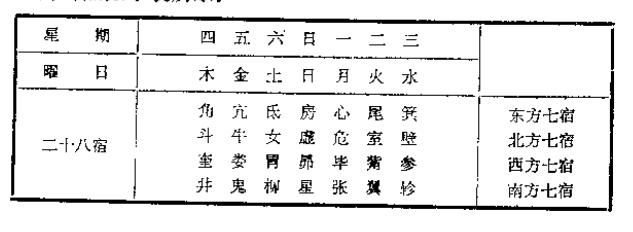 星 期 四 五 六 日 一 二 三
曜 日 木 金 土 日 月 火 水
角 亢 氐 房 心 尾 箕 东方七宿
二十八宿 斗 牛 女 虚 危 室 壁 北方七宿
奎 娄 胃 昴 毕 觜 参 西方七宿
井 鬼 柳 星 张 翼 轸 南方七宿